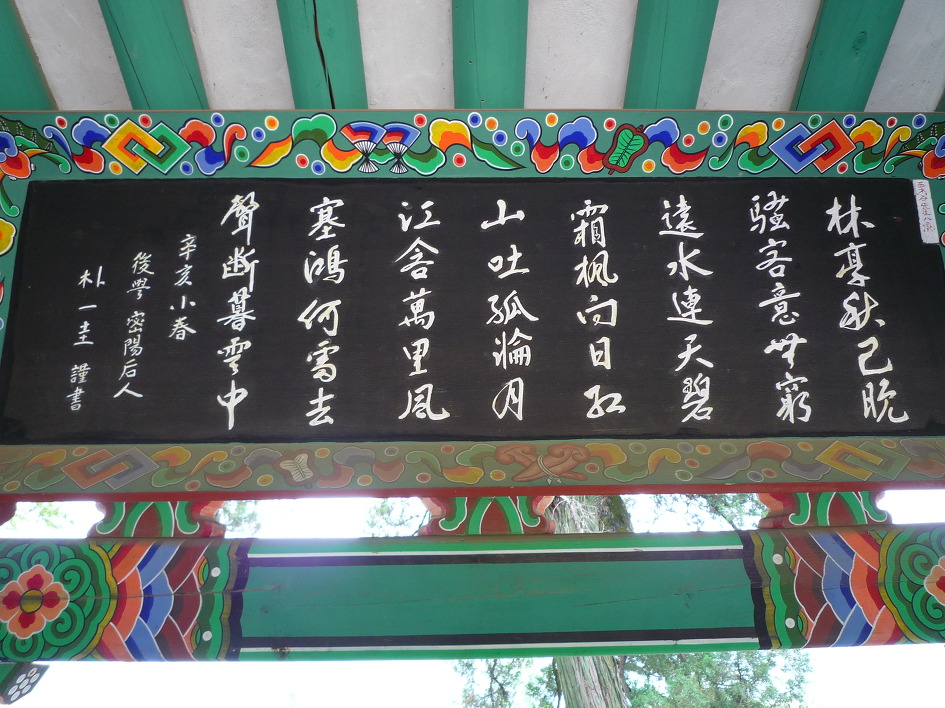 林亭秋已晩
騷客意無窮
遠水連天碧
霜楓向日紅
山吐孤輪月
江含萬里風
塞鴻何處去
聲断暮雲中
辛亥小春
後學 密陽后人
朴一圭 謹書